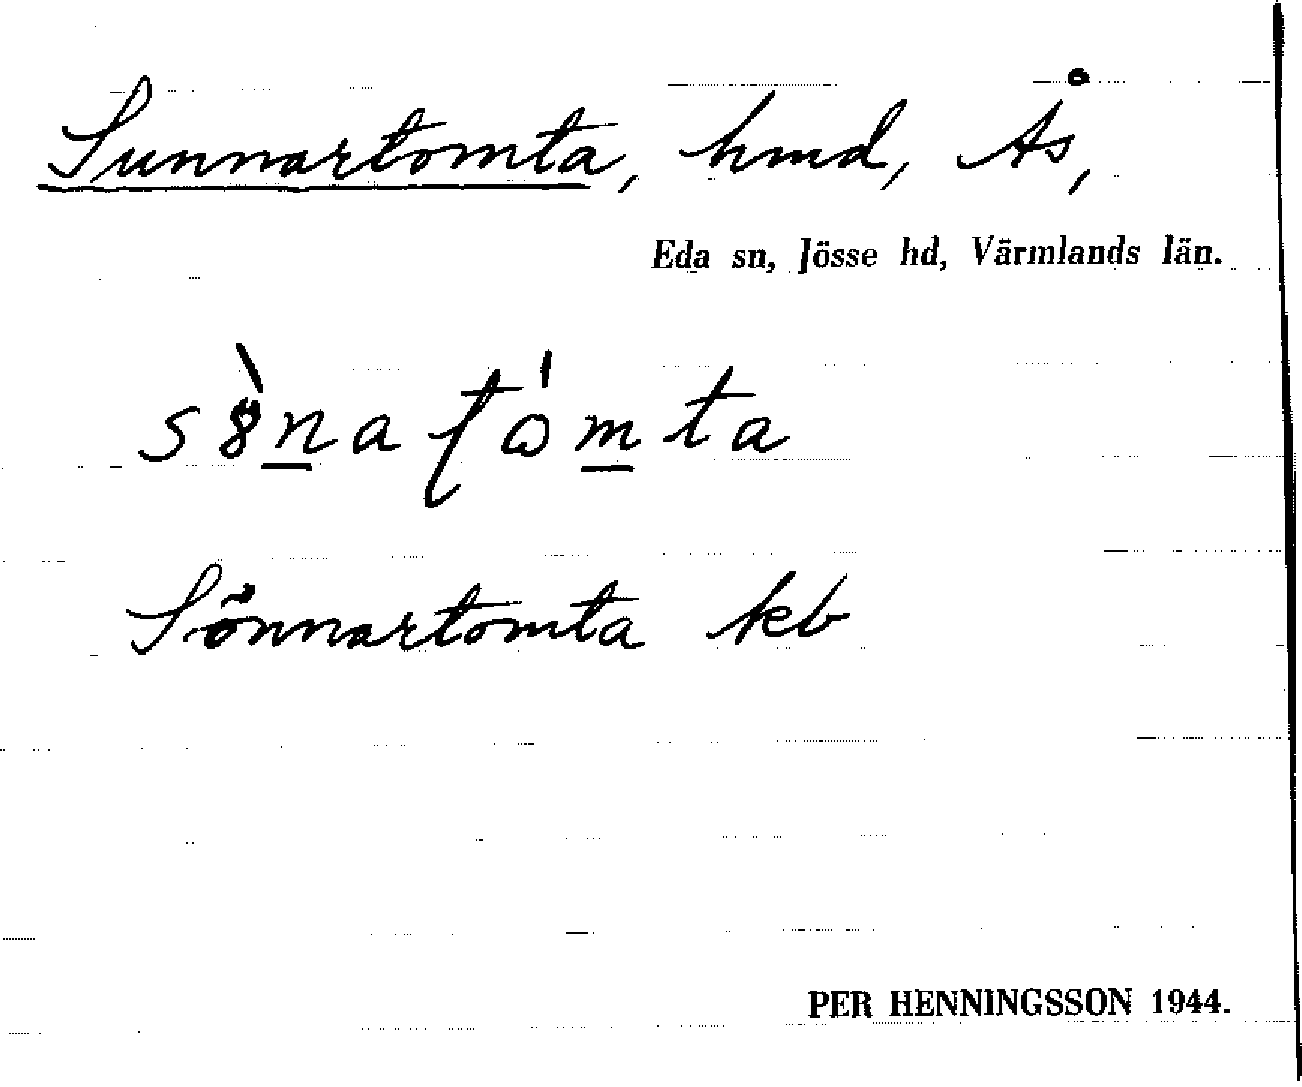 Sunnartomta, hmd, Ås,
Eda sn, Jösse hd, Värmlands län.
sö̀naʈómta
Sönnartomta kb
PER HENNINGSSON 1944.